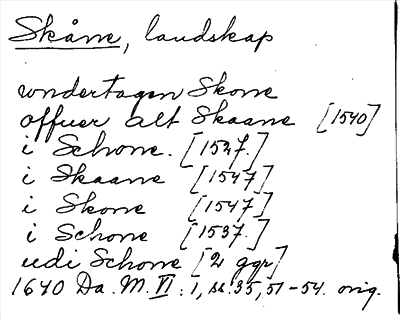 Skåne, landskap
undertagen Skone
offuer alt Skaane [1540]
i Schone. [1527.]
i Skaane [1547]
i Skone [1547]
i Schone [1537.]
udi Schone [2 ggr]
1640 Da. M. VI: 1, s. 35, 51-54. orig.